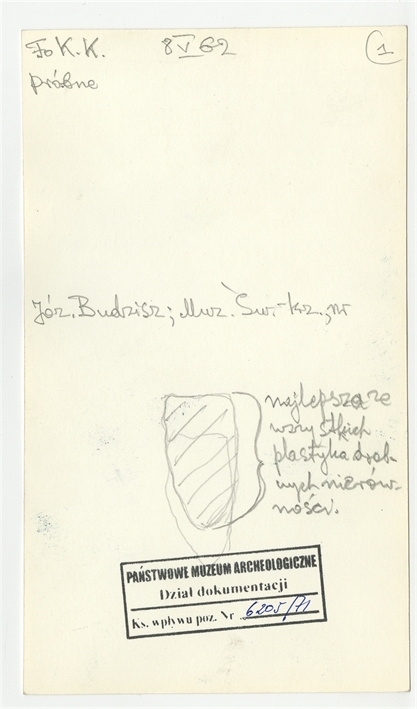 Fo K.K. 8 V 62 1
próbne
Józ. Budzisz; Muz. Św.-krz., nr
najlepsza ze
wszystkich
plastyka drob-
nych nierów-
ności.
PAŃSTWOWE MUZEUM ARCHEOLOGICZNE
Dział dokumentacji
Ks. wpływu poz. Nr 6205/71